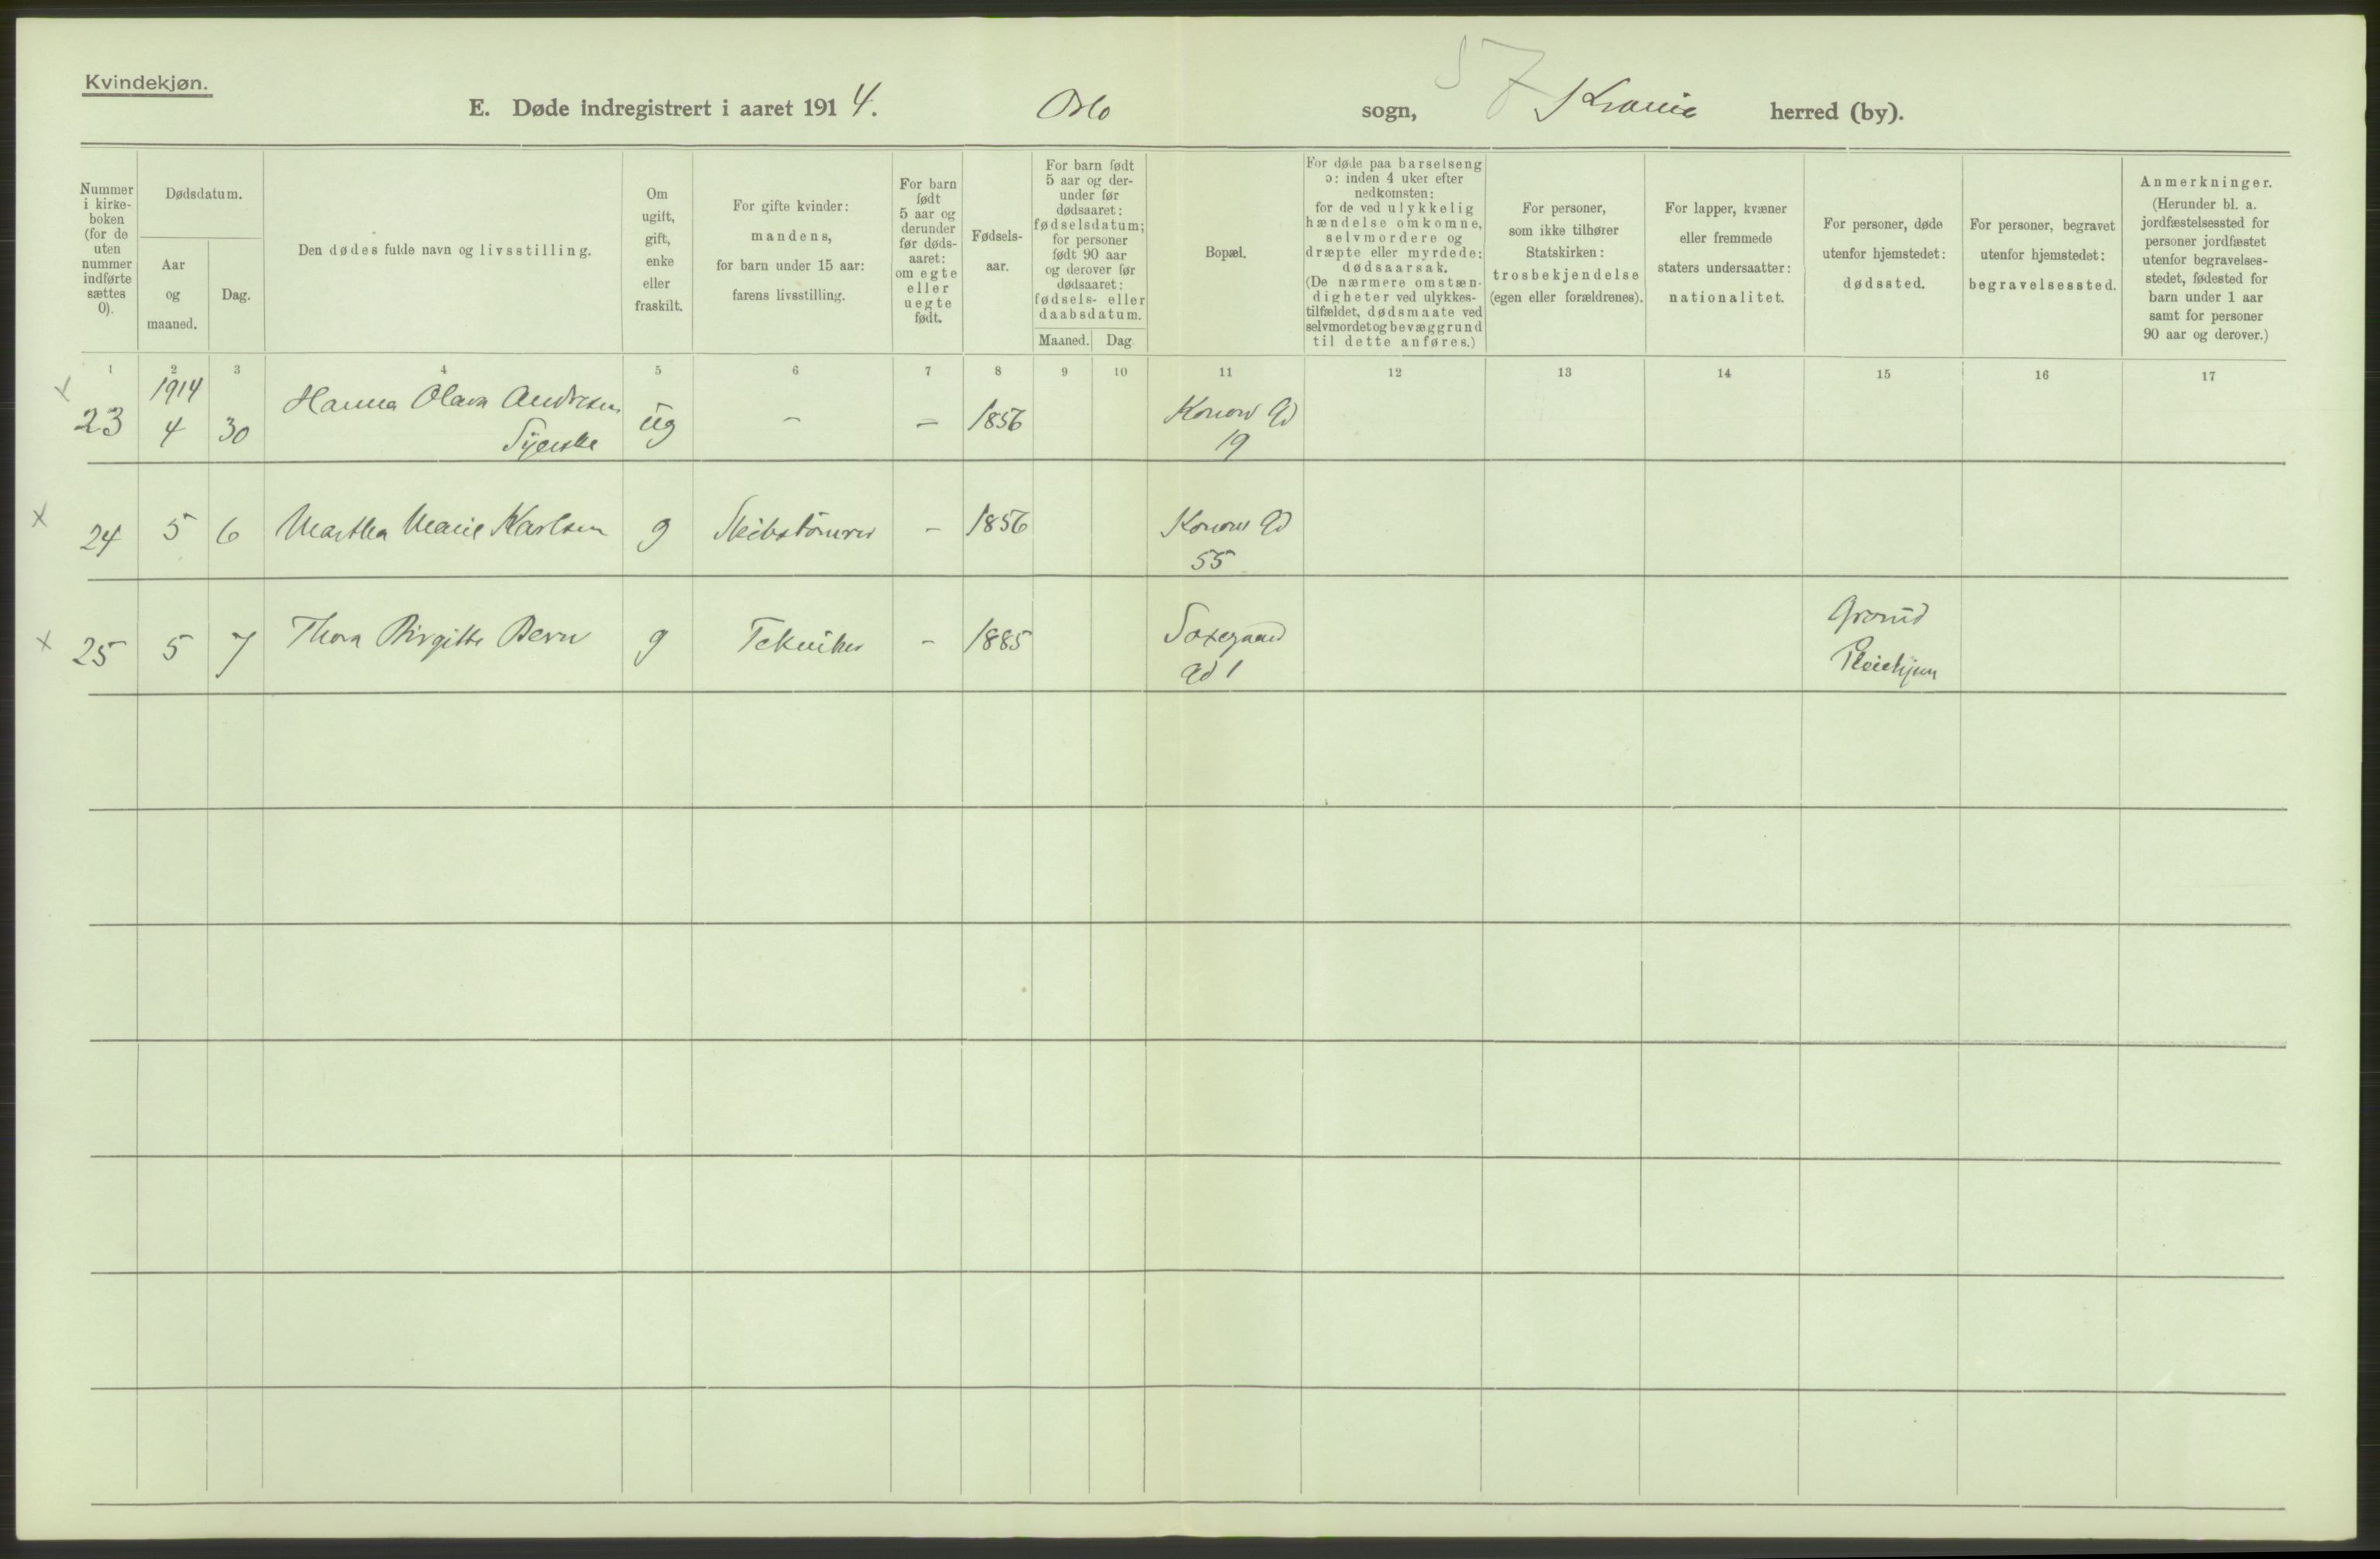 Kvindekjøn.
57
E. Døde indregistrert i aaret 1914. Oslo sogn, Krania herred (by).
Nummer
i kirke-
boken
(for de
uten
nummer
indførte
sættes
0).
Dødsdatum.
Aar
og
maaned.
Dag.
Den dødes fulde navn og livsstilling.
Om
ugift,
gift,
enke
eller
fraskilt.
For gifte kvinder:
mandens,
for barn under 15 aar:
farens livsstilling.
For barn
født
5 aar og
derunder
før døds-
aaret:
om egte
eller
uegte
født.
Fødsels-
aar.
For barn født
5 aar og der-
under før
dødsaaret:
fødselsdatum;
for personer
født 90 aar
og derover før
dødsaaret:
fødsels- eller
daabsdatum.
Maaned.
Dag
Bopæl.
For døde paa barselseng
ɔ: inden 4 uker efter
nedkomsten:
for de ved ulykkelig
hændelse omkomne,
selvmordere og
dræpte eller myrdede:
dødsaarsak.
(De nærmere omstæn-
digheter ved ulykkes-
tilfældet, dødsmaate ved
selvmordet og bevæggrund
til dette anføres.)
For personer,
som ikke tilhører
Statskirken:
trosbekjendelse
(egen eller forældrenes).
For lapper, kvæner
eller fremmede
staters undersaatter:
nationalitet.
For personer, døde
utenfor hjemstedet:
dødssted.
For personer, begravet
utenfor hjemstedet:
begravelsessted.
Anmerkninger.
(Herunder bl. a.
jordfæstelsessted for
personer jordfæstet
utenfor begravelses-
stedet, fødested for
barn under 1 aar
samt for personer
90 aar og derover.)
1 2 3 4 5 6 7 8 9 10 11 12 13 14 15 16 17
1914
x 23 4 30 Hanna Olava Andresen ug – – 1856 Konow Gd
Syerske 19
x 24 5 6 Martha Marie Karlsen g Skibstømrer – 1856 Konow Gd
55
x 25 5 7 Thora Birgitte Bern g Tekniker – 1885 Saxegaard Grorud
Gd 1 Pleiehjem